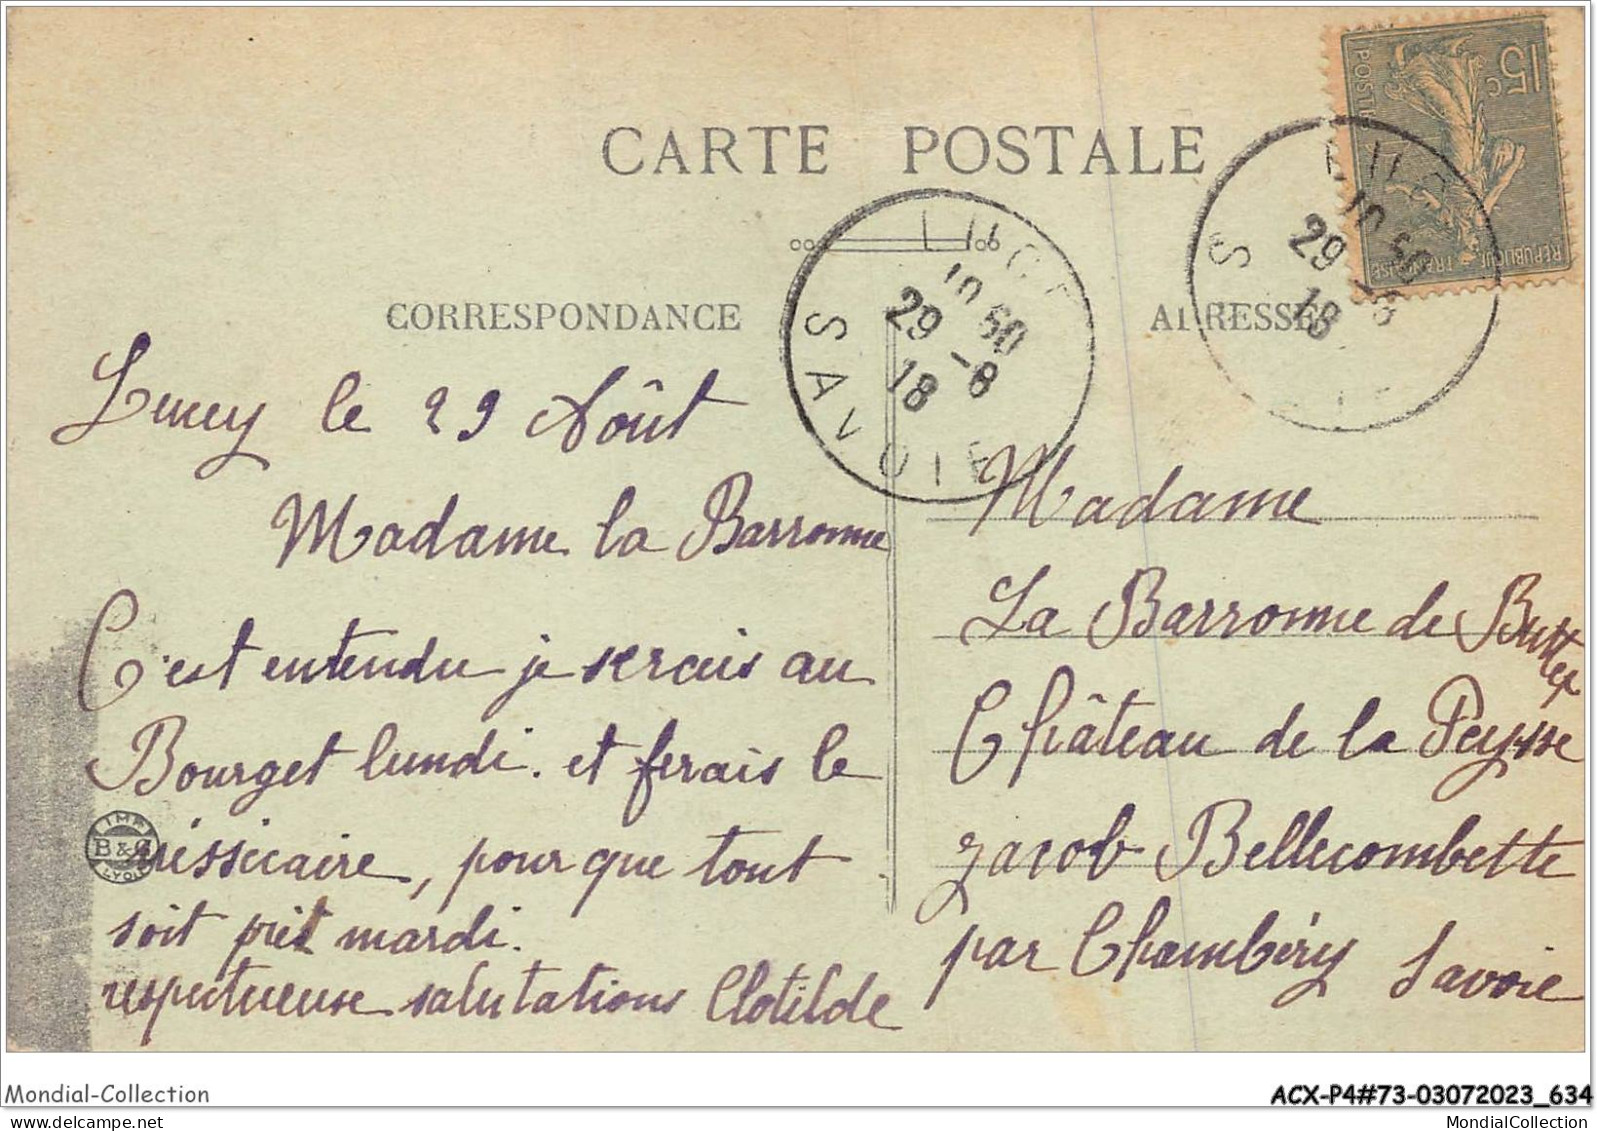 CARTE POSTALE
CORRESPONDANCE
ADRESSE
15c
POSTES
RÉPUBLIQUE FRANÇAISE
LUCEY
10 50
29 -8
18
SAVOIE
10 50
29 -8
18
S
Lucey le 29 Août
Madame la Barronne
C'est entendu je serais au
Bourget lundi. et ferais le
nessicaire, pour que tout
soit prêt mardi.
respectueuse salutations Clotilde
Madame
La Barronne de Buttet
Château de la Peysse
Jacob Bellecombette
par Chambéry Savoie
IMP.
B & G
LYON
Mondial-Collection
ACX-P4#73-03072023_634
MondialCollection